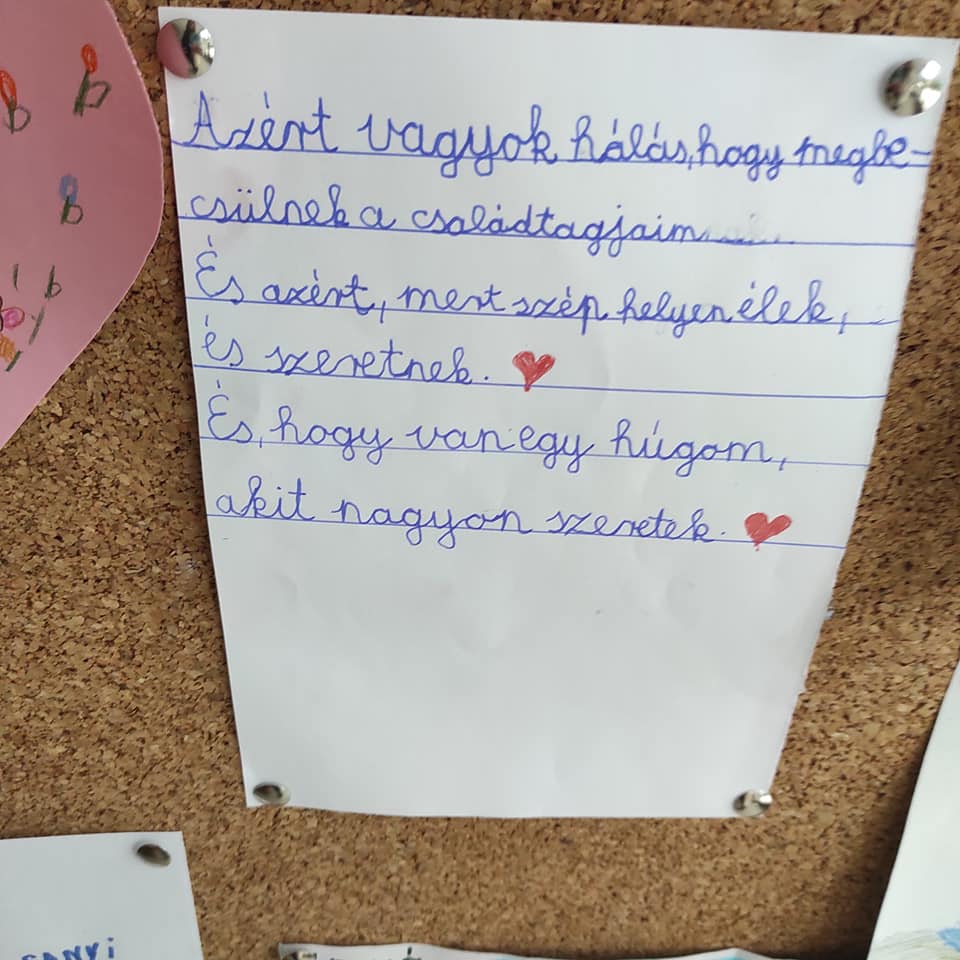 Azért vagyok hálás, hogy megbe-
csülnek a családtagjaim
És azért, mert szép helyen élek,
és szeretnek.
És, hogy van egy húgom,
akit nagyon szeretek.